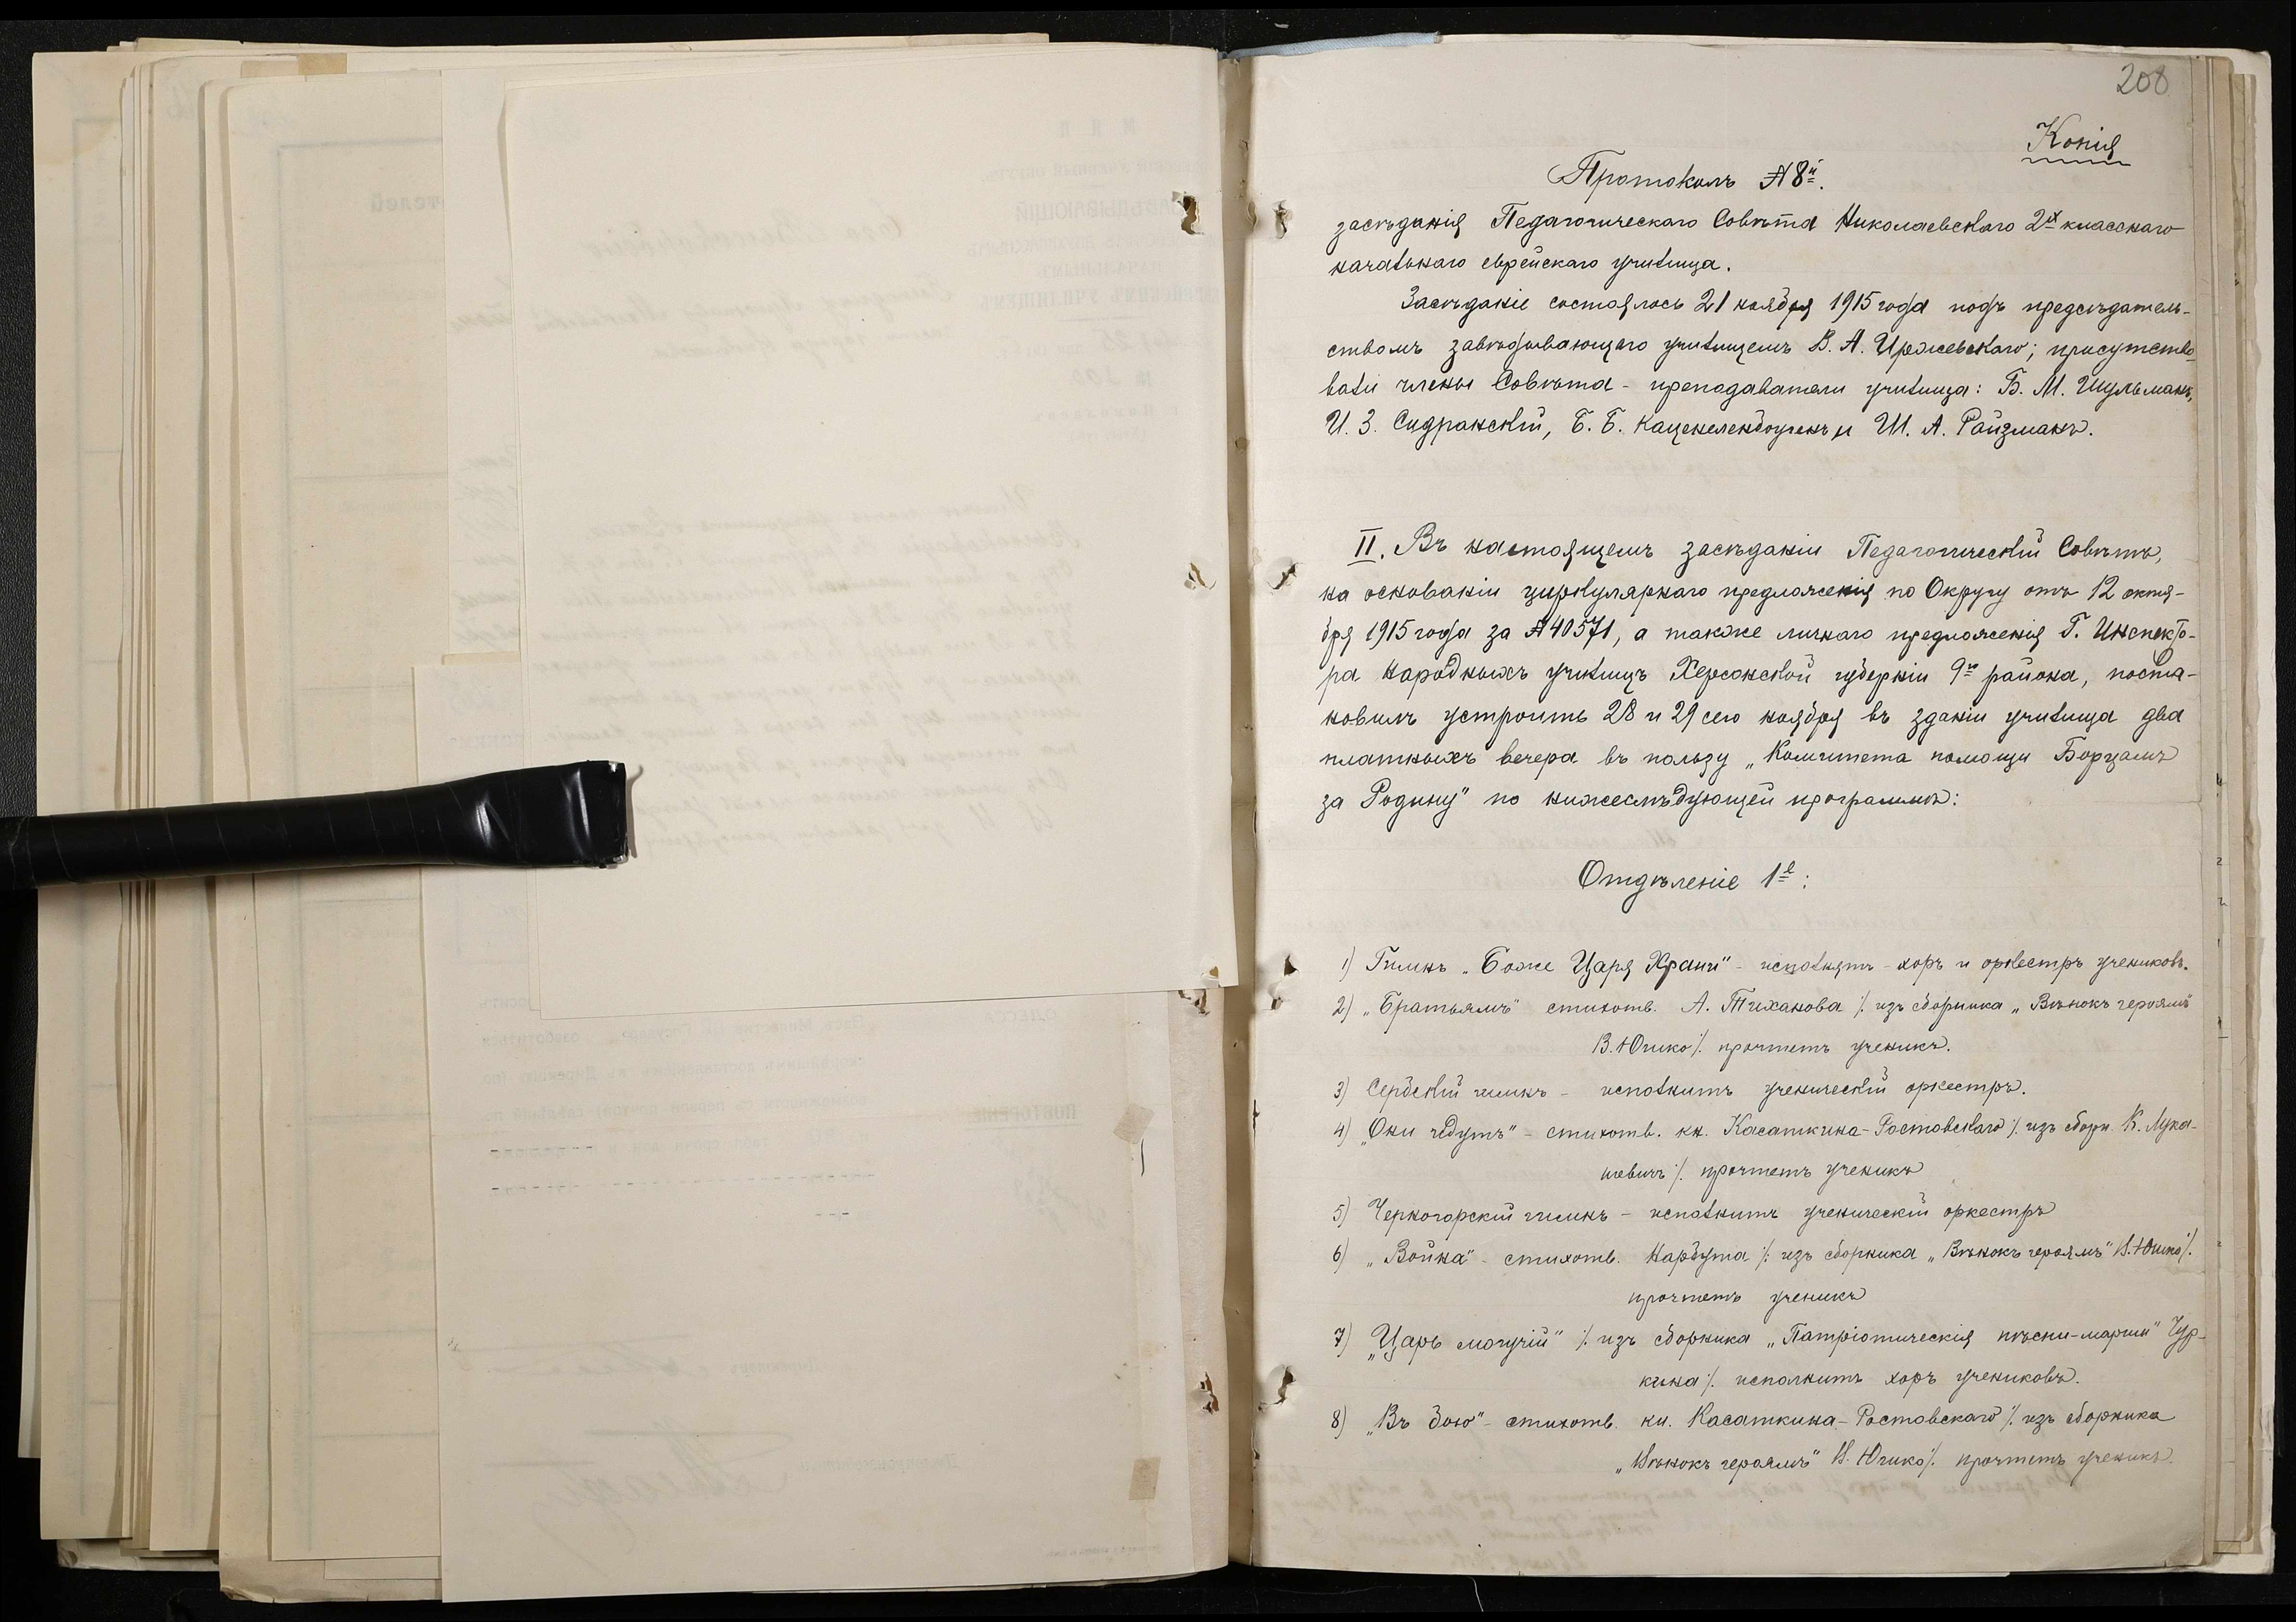 208
Копія
Протоколъ № 8й.
засѣданія Педагогическаго Совѣта Николаевскаго 2х классного
начальнаго еврейскаго училища.
Засѣданіе состоялось 21 ноября 1915 года подъ предсѣдатель-
ствомъ завѣдывающаго училищемъ В. А. Иржевскаго; присутство-
вали члены Совѣта - преподаватели училища: Б. М. Шульманъ,
И. З. Сидранскій, Б. Б. Каценеленбогенъ и Ш. А. Райзманъ.
II. Въ настоящемъ засѣданіи Педагогическій Совѣтъ,
на основаніи циркулярнаго предложенія по Округу отъ 12 октя-
бря 1915 года за № 40571, а также личнаго предложенія Г. Инспекто-
ра народныхъ училищъ Херсонской губерніи 9го района, поста-
новилъ устроить 28 и 29 сего ноября въ зданіи училища два
платныхъ вечера въ пользу „Комитета помощи Борцамъ
за Родину" по нижеслѣдующей программѣ:
Отдѣленіе 1е:
1) Гимнъ „Боже Царя Храни" - исполнятъ - хоръ и оркестръ учениковъ.
2) „Братьямъ" стихотв. А. Тиханова /. изъ сборника „Вѣнокъ героямъ"
В. Юшко /. прочтетъ ученикъ.
3) Сербскій гимнъ - исполнитъ ученическій оркестръ.
4) „Они идутъ" - стихотв. кн. Касаткина-Ростовскаго /. изъ сборн. К. Лука-
шевичъ /. прочтетъ ученикъ
5) Черногорскій гимнъ - исполнитъ ученическій оркестръ
6) „Война" - стихотв. Нарбута /. изъ сборника „Вѣнокъ героямъ" В. Юшко /.
прочтетъ ученикъ
7) „Царь могучій" /. изъ сборника „Патріотическія пѣсни-марши" Чур-
кина /. исполнитъ хоръ учениковъ.
8) „Въ бою" - стихотв. кн. Касаткина-Ростовскаго /. изъ сборника
„Вѣнокъ героямъ" В. Юшко /. прочтетъ ученикъ.